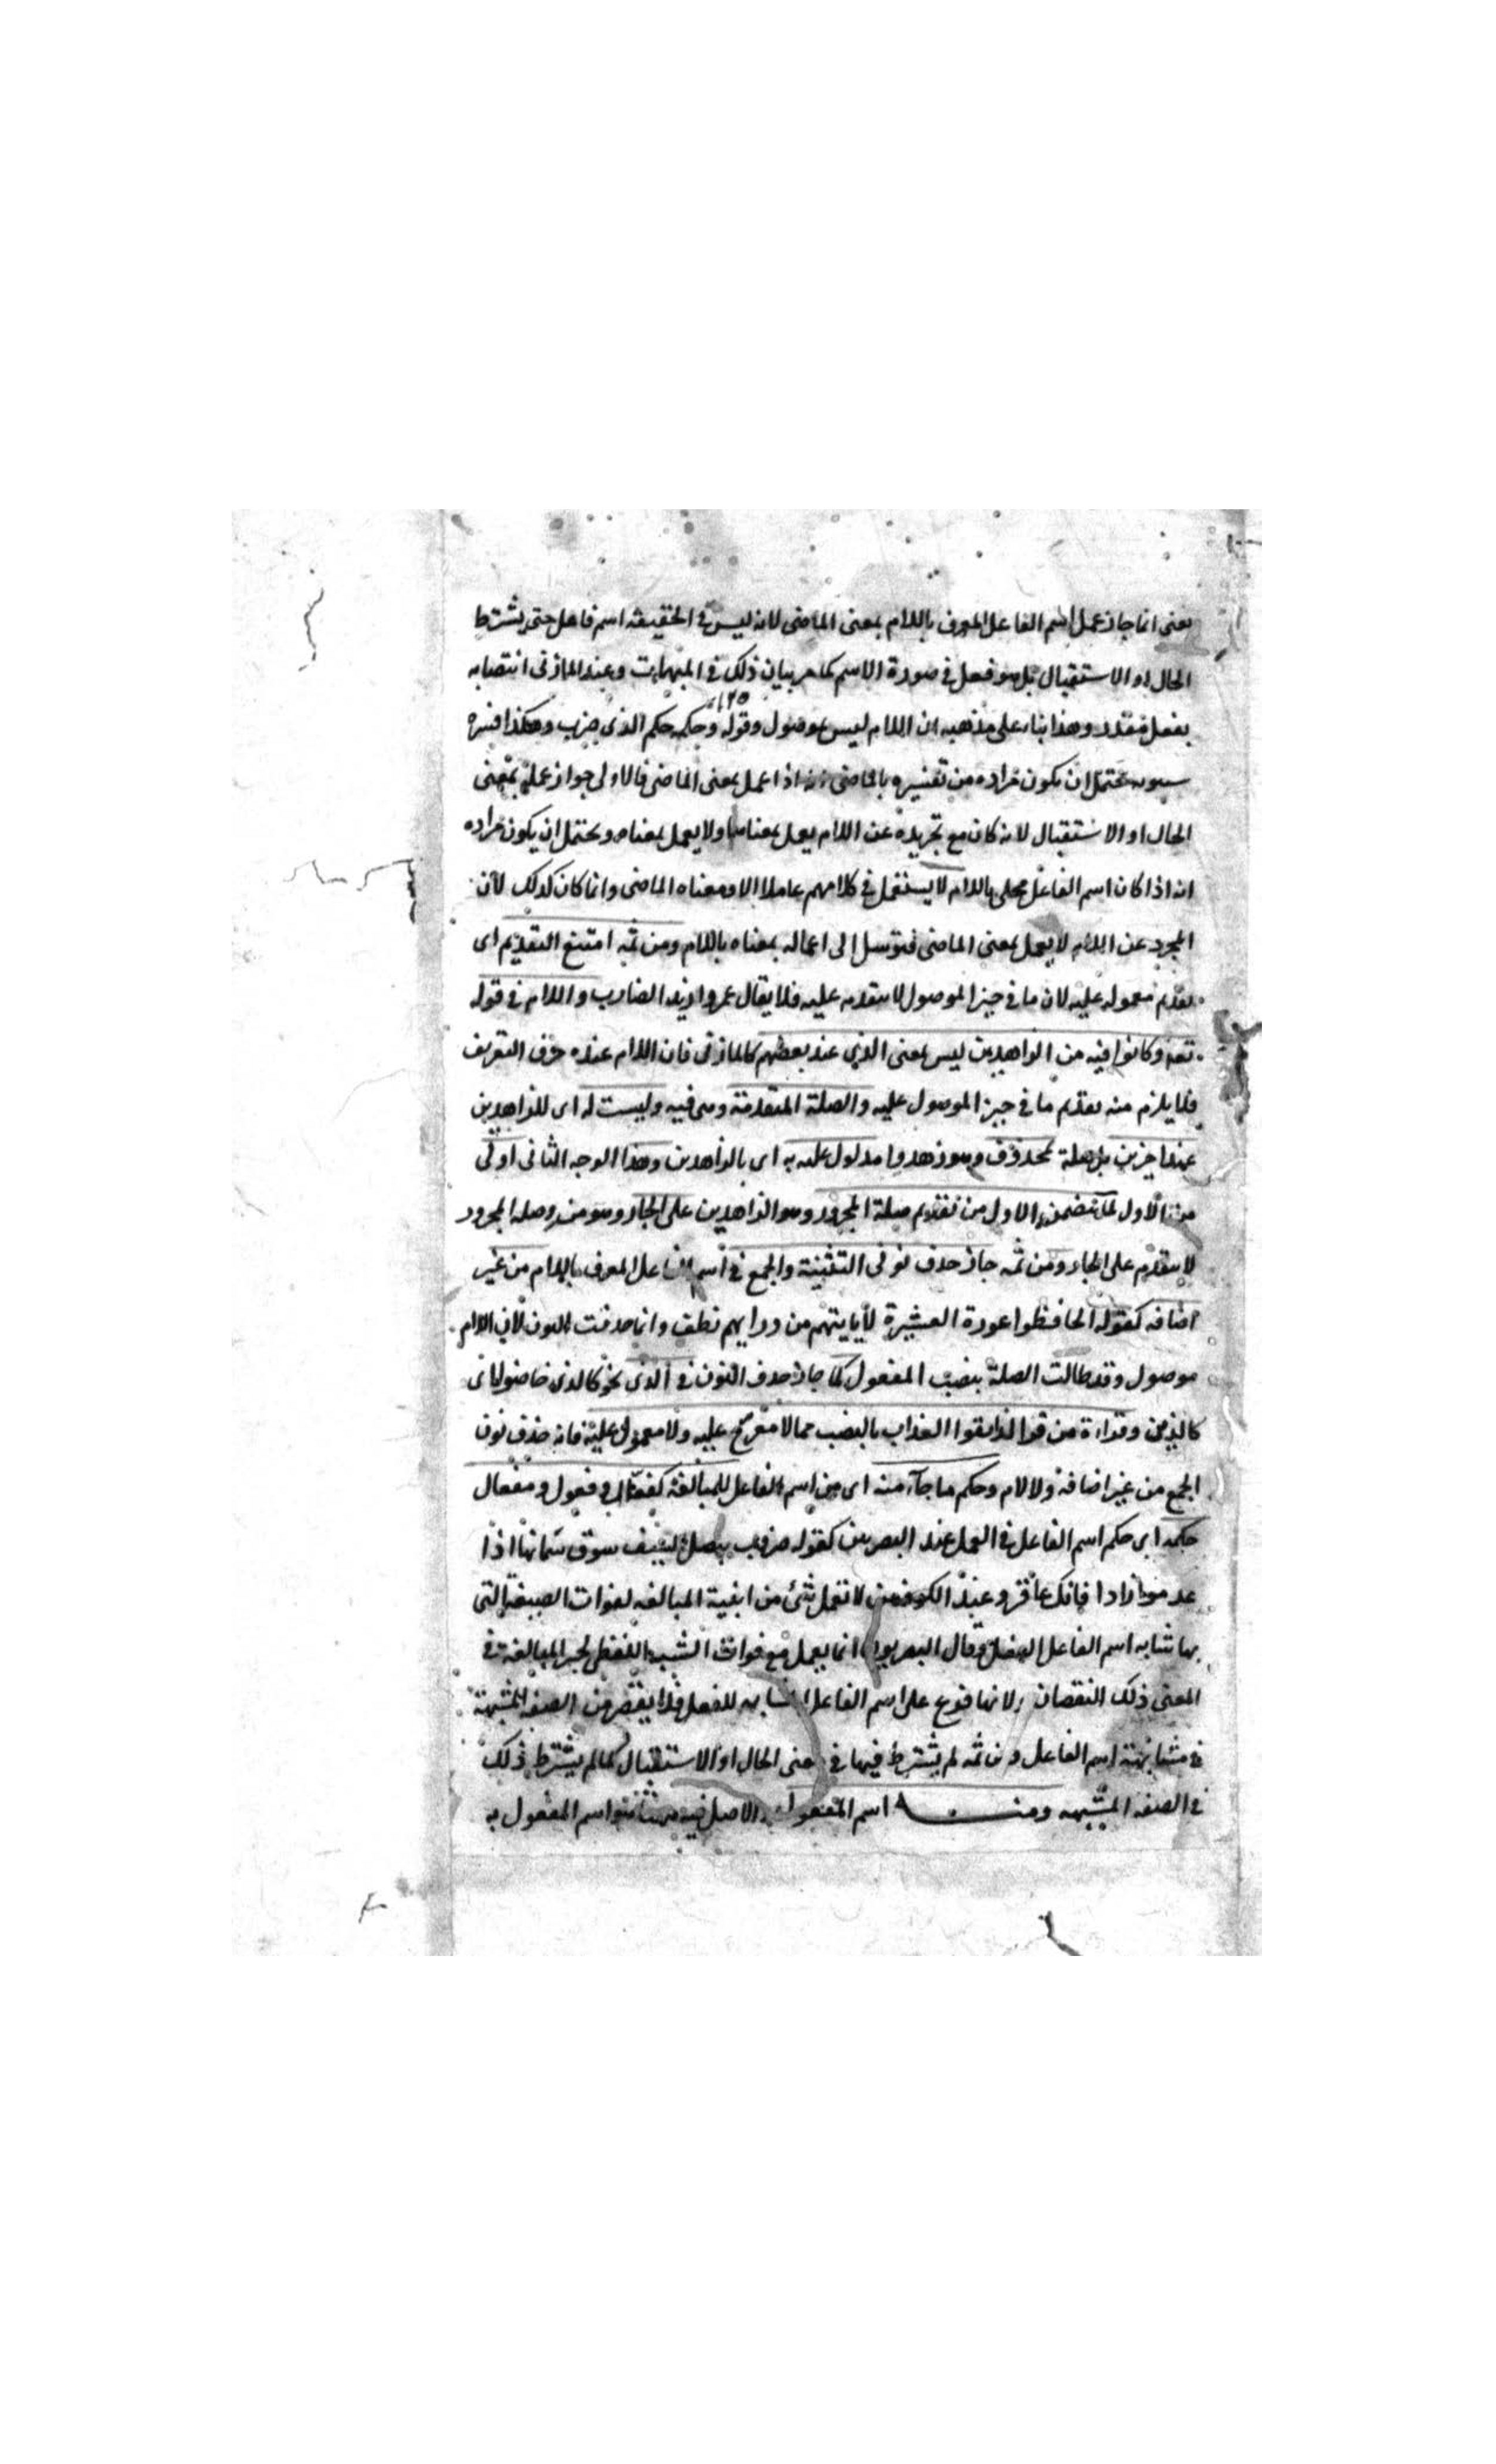 يعنى انما جاز عمل اسم الفاعل المعرف باللام بمعنى الماضى لانه ليس فى الحقيقة اسم فاعل حتى يشترط
الحال او الاستقبال بل هو فعل فى صورة الاسم كما مر بيان ذلك فى المبهمات وعند المازنى انتصابه
بفعل مقدر وهذا بناء على مذهبه ان اللام ليس بموصول وقوله وحكمه حكم الذى ضرب وهكذا فسره
سيبويه يحتمل ان يكون مراده من تفسيره بالماضى انه اذا عمل بمعنى الماضى فالاولى جواز عمله بمعنى
الحال او الاستقبال لانه كان مع تجريده عن اللام يعمل بمعناهما ولا يعمل بمعناه ويحتمل ان يكون مراده
انه اذا كان اسم الفاعل محلى باللام لا يستعمل فى كلامهم عاملا الا ومعناه الماضى وانما كان كذلك لان
المجرد عن اللام لا يعمل بمعنى الماضى فتوسل الى اعماله بمعناه باللام ومن ثمه امتنع التقديم اى
تقديم معموله عليه لان ما فى حيز الموصول لا يتقدم عليه فلا يقال عمروا زيد الضارب واللام فى قوله
تعه وكانوا فيه من الزاهدين ليس بمعنى الذى عند بعضهم كالمازنى فان اللام عنده حرف التعريف
فلا يلزم منه تقديم ما فى حيز الموصول عليه والصلة المتقدمة وهى فيه وليست له اى للزاهدين
عند اخرين بل صلة لمحذوف وهو زهدوا مدلول عليه به اى بالزاهدين وهذا الوجه الثانى اولى
من الاول لما تضمن الاول من تقديم صلة المجرور وهو الزاهدين على الجار وهو من وصلة المجرور
لا يتقدم على الجار ومن ثمه جاز حذف نونى التثنية والجمع فى اسم الفاعل المعرف باللام من غير
اضافه كقوله الحافظوا عورة العشيرة لا يأتيهم من ورايهم نطف وانما حذفت النون لان اللام
موصول وقد طالت الصلة بنصب المفعول كما جاز حذف النون فى الذى نحو كالذى خاضوا اى
كالذين وقراءة من قرا لذايقوا العذاب بالنصب مما لا معرج عليه ولا معول عليه فانه حذف نون
الجمع من غير اضافة ولا لام وحكم ما جاء منه اى من اسم الفاعل للمبالغة كفعال وفعول ومفعال
حكمه اى حكم اسم الفاعل فى العمل عند البصريين كقوله ضروب بنصل السيف سوق سمانها اذا
عدموا زادا فانك عاقر وعند الكوفيين لا تعمل شئ من ابنية المبالغه لفوات الصيغة التى
بها شابه اسم الفاعل الفعل وقال البصريون انما يعمل مع فوات الشبه اللفظى لجبر المبالغة فى
المعنى ذلك النقصان ولانها فرع على اسم الفاعل المشابه للفعل فلا يقصر عن الصفة المشبهة
فى مشابهتة اسم الفاعل ومن ثمه لم يشترط فيها فى معنى الحال او الاستقبال كما لم يشترط ذلك
فى الصفه المشبهه ومنه اسم المفعول الاصل فيه اسم المفعول به